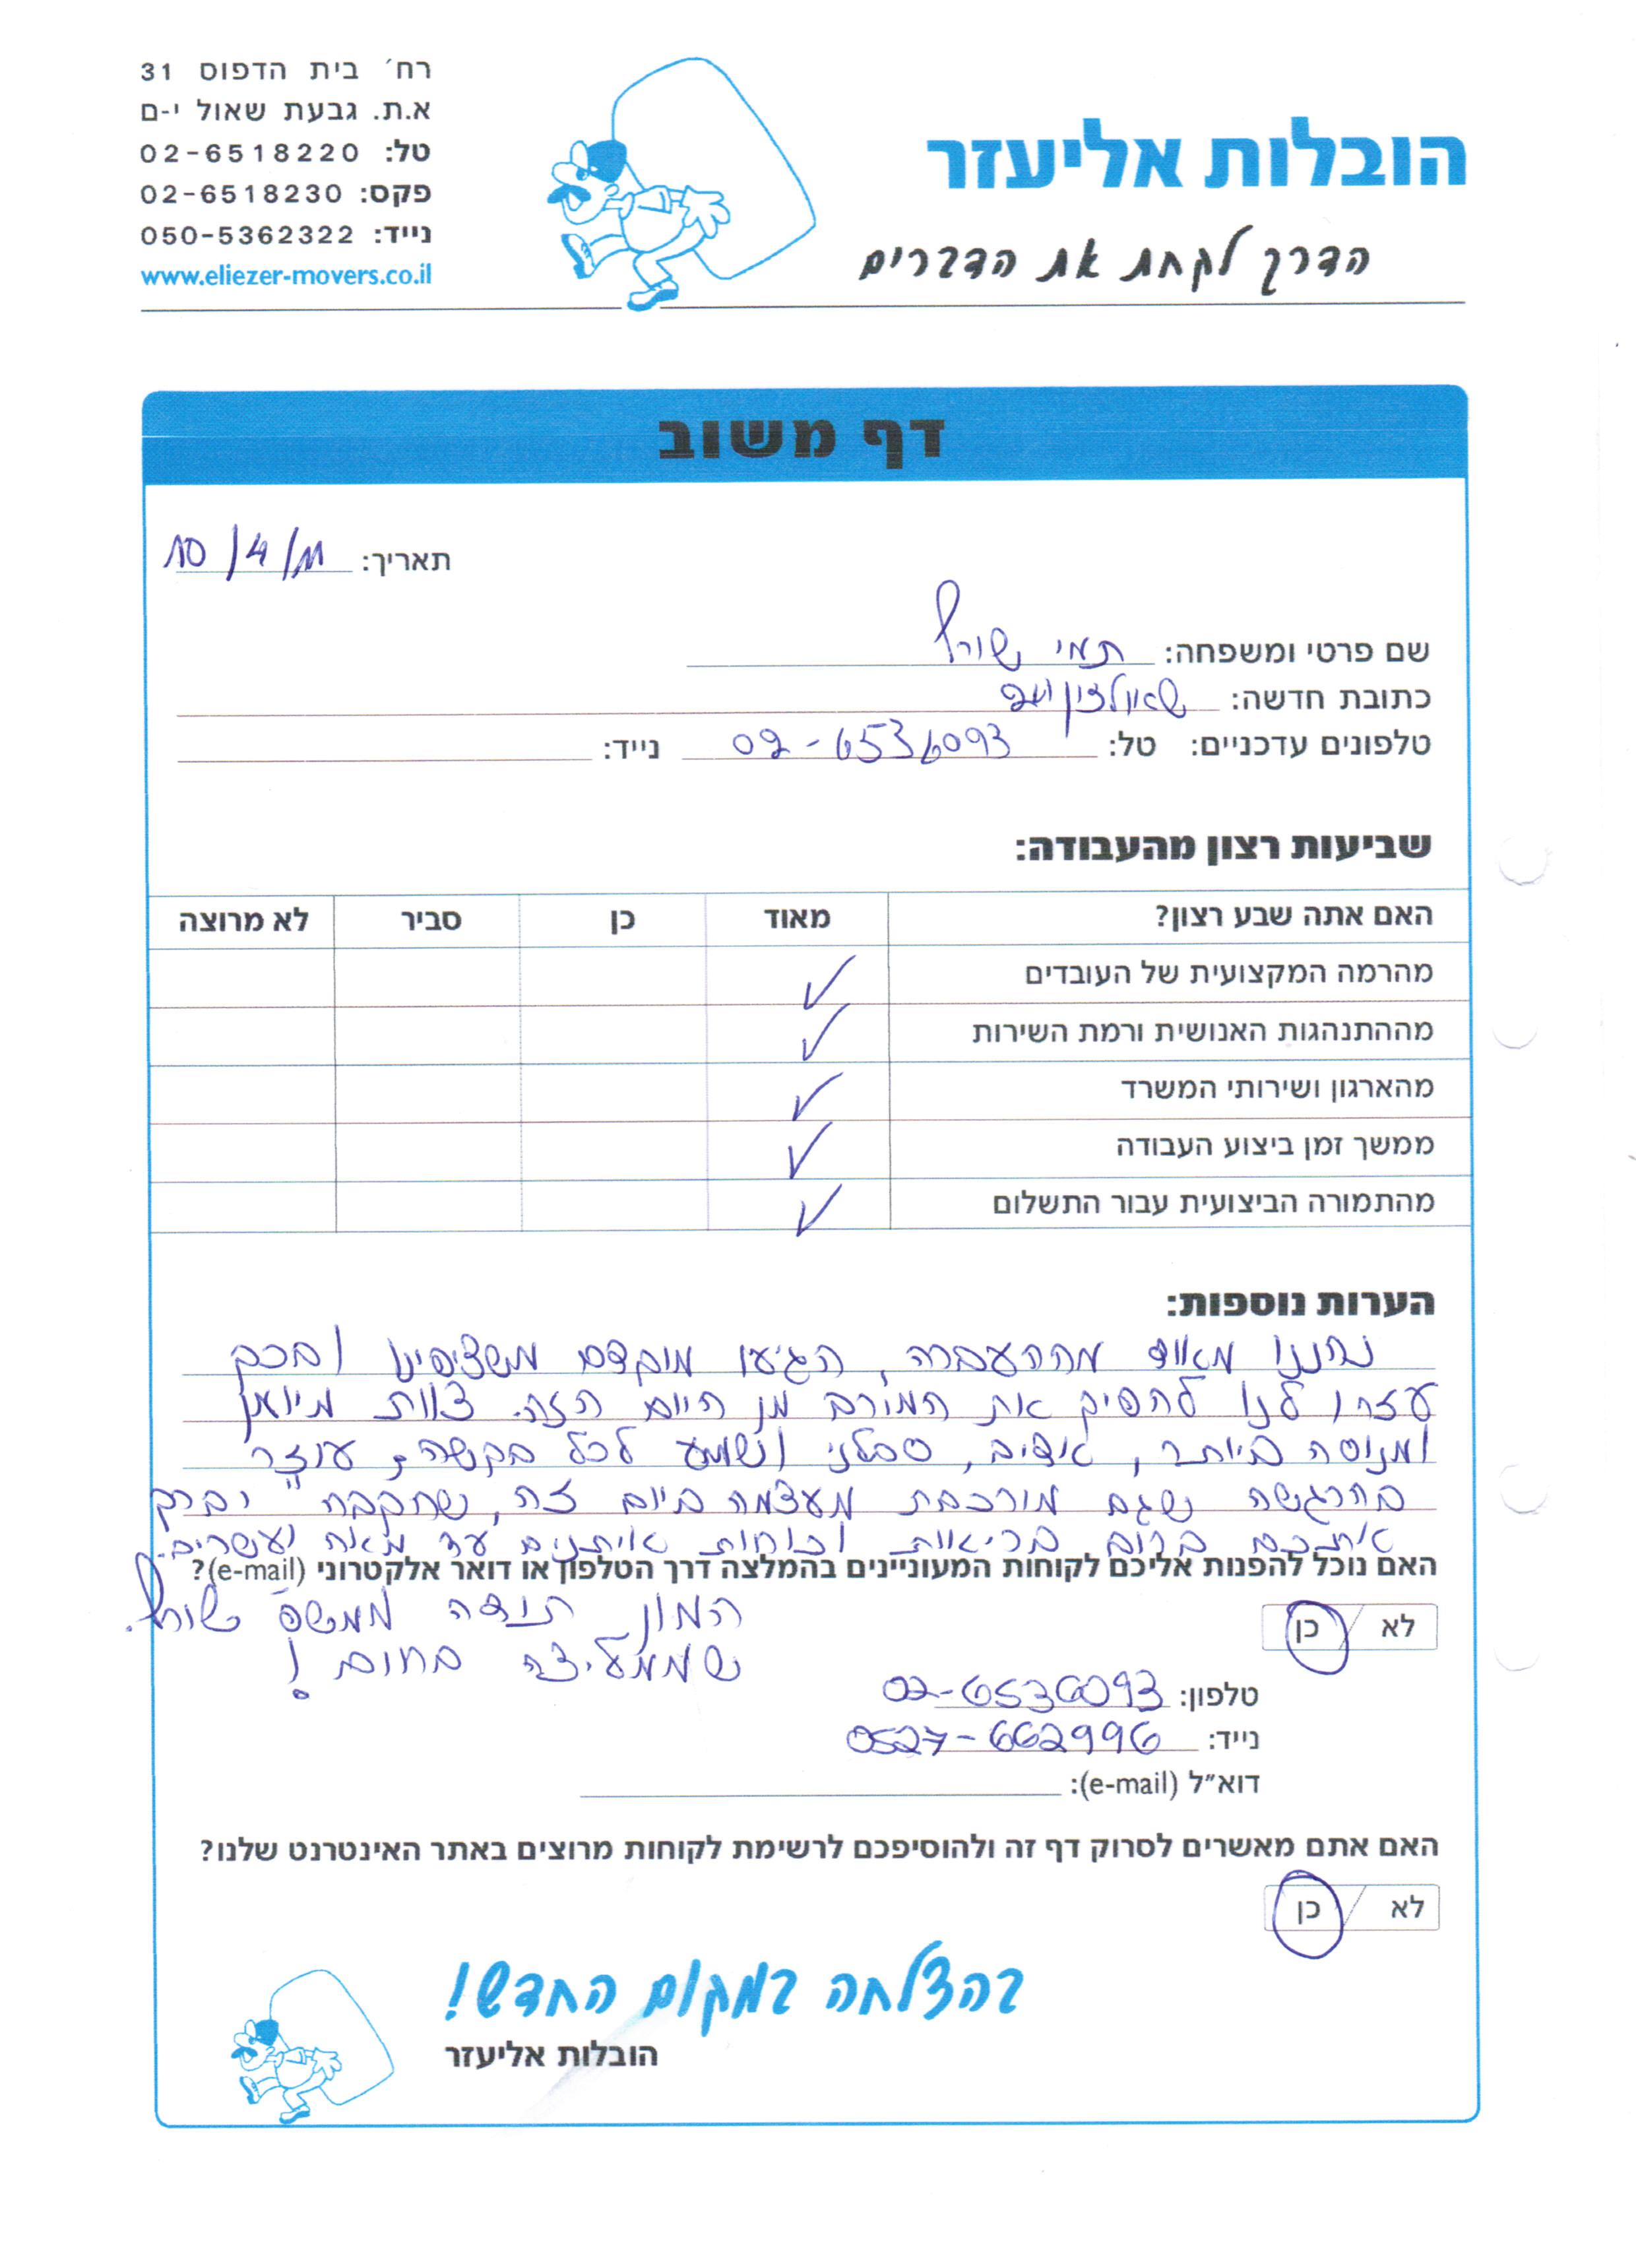 רח׳ בית הדפוס 31
א.ת. גבעת שאול י-ם
טל: 02-6518220
פקס: 02-6518230
נייד: 050-5362322
www.eliezer-movers.co.il
הובלות אליעזר
הדרך לקחת את הדברים
דף משוב
תאריך: 11/4/10
שם פרטי ומשפחה: תמי שורץ
כתובת חדשה:
טלפונים עדכניים: טל: 02-6536093 נייד:
שביעות רצון מהעבודה:
האם אתה שבע רצון? מאוד כן סביר לא מרוצה
מהרמה המקצועית של העובדים ✓
מההתנהגות האנושית ורמת השירות ✓
מהארגון ושירותי המשרד ✓
ממשך זמן ביצוע העבודה ✓
מהתמורה הביצועית עבור התשלום ✓
הערות נוספות:
נהננו מאוד מההעברה, הגיעו מוקדם משציפינו ובכך
עזרו לנו להפיק את המירב מן היום הזה. צוות מיומן
ומנוסה ביותר, אדיב, סבלני ונשמע לכל בקשה, עוזר
בהרגשה שגם מורכבת מעצמה ביום זה, שהקבה" יברך
אתכם ברום בריאות וכוחות איתנים עד מאה ועשרים.
האם נוכל להפנות אליכם לקוחות המעוניינים בהמלצה דרך הטלפון או דואר אלקטרוני (e-mail)?
לא / כן
המון תודה ממשפ' שורץ.
שממליצה בחום!
טלפון: 02-6536093
נייד: 0527-662996
דוא״ל (e-mail):
האם אתם מאשרים לסרוק דף זה ולהוסיפכם לרשימת לקוחות מרוצים באתר האינטרנט שלנו?
לא / כן
בהצלחה במקום החדש!
הובלות אליעזר